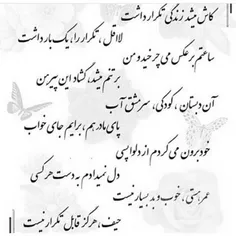 کاش میشد زندگی تکرار داشت
لااقل ، تکرار را، یک بار داشت
ساعتم برعکس می چرخید و من
برتنم میشد، گشاد این پیرهن
آن دبستان ، کودکی، سرمشق آب
پای مادر هم ، برایم جای خواب
خود برون می کردم از دلواپسی
دل نمیدادم به دست هر کسی
عمر هستی ، خوب و بد بسیار نیست
حیف، هرگز قابل تکرار نیست